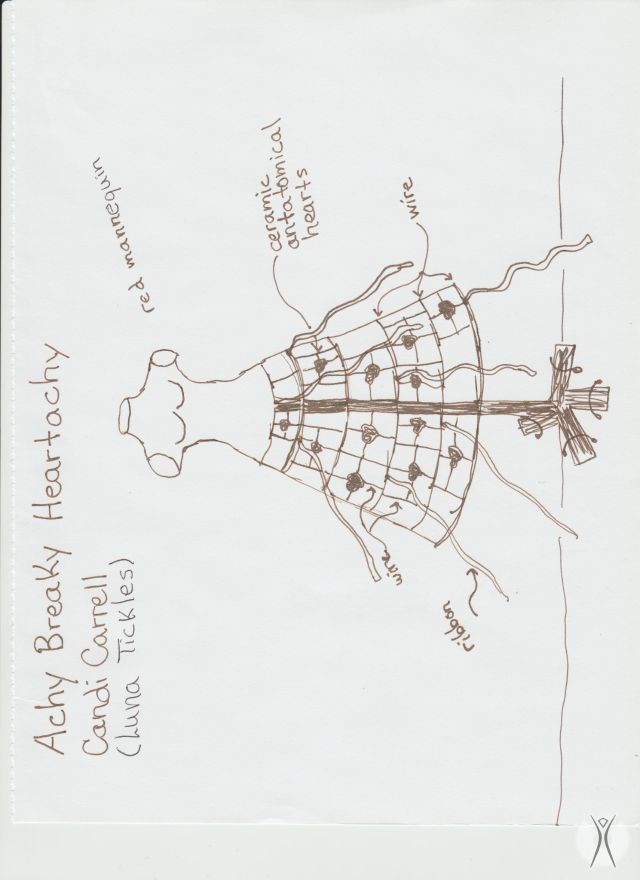 Achy Breaky Heartachy
Candi Carrell
(Luna Tickles)
red mannequin
ceramic
antatomical
hearts
wire
wire
ribbon